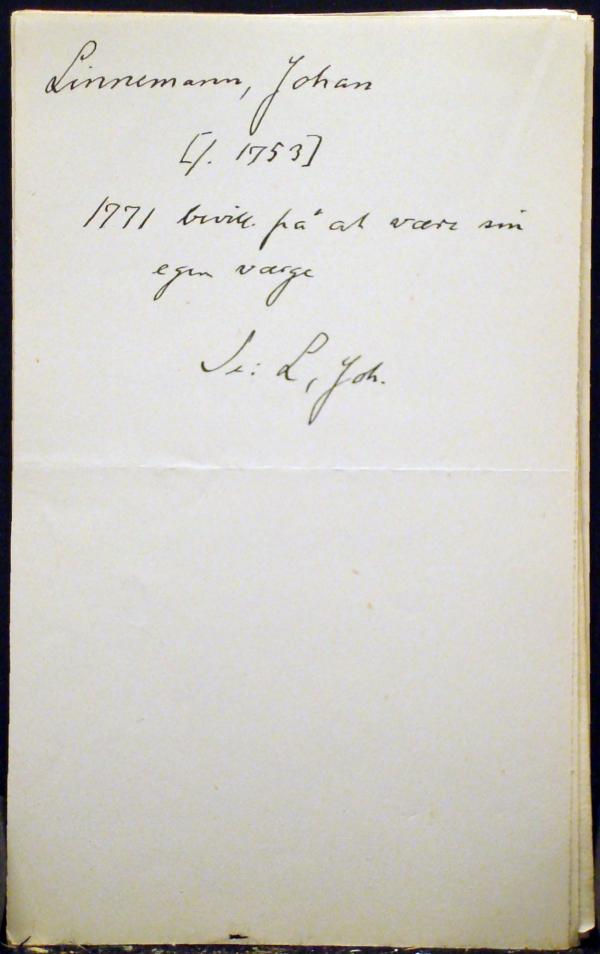 Linnemann, Johan
[f. 1753]
1771 bevill. på at være sin
egen værge
Se: L, Joh.